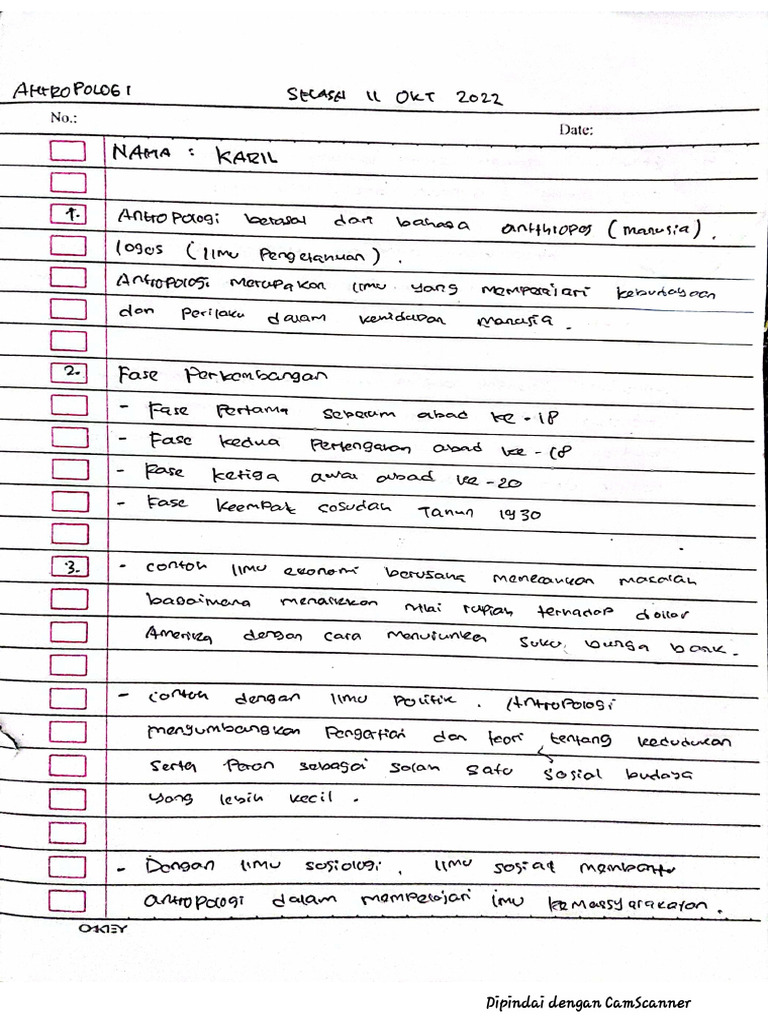 ANTROPOLOGI SELASA 11 OKT 2022
No.: Date:
NAMA : KARIL
1. Antropologi berasal dari bahasa anthropos (manusia).
logos (Ilmu Pengetahuan).
Antropologi merupakan ilmu yang mempelajari kebudayaan
dan Perilaku dalam kehidupan manusia.
2. Fase Perkembangan
- Fase Pertama sebelum abad ke-18
- Fase kedua Pertengahan abad ke-18
- Fase ketiga awal abad ke-20
- Fase keempat sesudah Tahun 1930
3. - contoh Ilmu ekonomi berusaha menekankan masalah
bagaimana menaikkan nilai rupiah terhadap dollar
Amerika dengan cara menurunkan suku bunga bank.
- contoh dengan Ilmu Politik. Antropologi
menyumbangkan Pengertian dan teori tentang kedudukan
serta Peran sebagai salah satu sosial budaya
yang lebih kecil.
- Dengan Ilmu sosiologi, Ilmu sosial membantu
antropologi dalam mempelajari ilmu kemasyarakatan.
OKEY
Dipindai dengan CamScanner